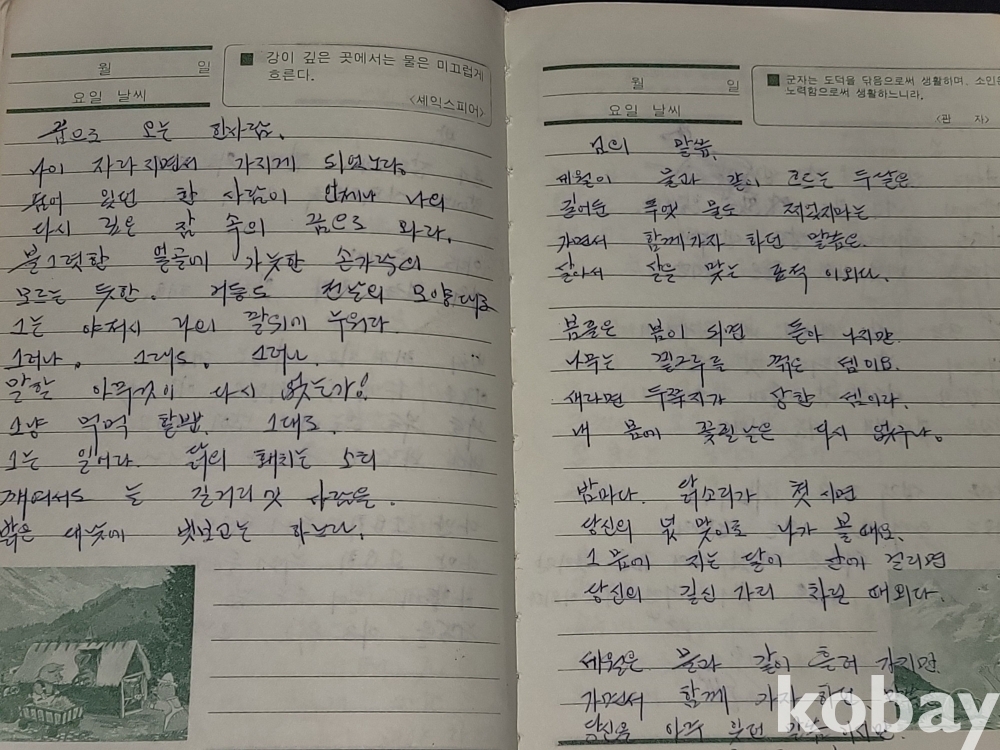 월 일
요일 날씨
■ 강이 깊은 곳에서는 물은 미끄럽게
흐른다.
〈세익스피어〉
꿈으로 오는 한사람.
나이 자라지면서 가지게 되었노라.
숨어 있던 한 사람이 언제나 나의
다시 깊은 잠 속의 꿈으로 와라.
불그렷한 얼골에 가늣한 손가락의
모르는 듯한. 거동도 전날의 모양대로
그는 야저시 나의 팔위에 누워라
그러나, 그래도, 그러나.
말할 아무것이 다시 없는가!
그냥 먹먹 할뿐, 그대로.
그는 일어라. 닭의 홰치는 소리
깨여서도 늘 길거리 사람을.
밝은 대낮에 빗보고는 하노라.
월 일
요일 날씨
■ 군자는 도덕을 닦음으로써 생활하며, 소인은
노력함으로써 생활하느니라.
자〉
님의 말씀.
세월이 물과 같이 흐르는 두달은
길어둔 독엣 물도 찌었지마는
가면서 함께가자 하던 말씀은
살아서 살을 맞는 표적 이외다.
봄풀은 봄이 되면 돋아 나지만
나무는 밑그루를 꺾은 셈이요
새라면 두쭉지가 상한 셈이라.
내 몸에 꽃필날은 다시 없구나.
밤마다. 닭소리가 첫시면
당신의 넋 맞이로 나가 볼때요.
그 몸에 지는 달이 산에 걸리면
당신의 길신 가리 차릴 때외다.
세월은 물과 같이 흘러 가지만
가면서 함께 가자 하던
당신을 아주
kobay